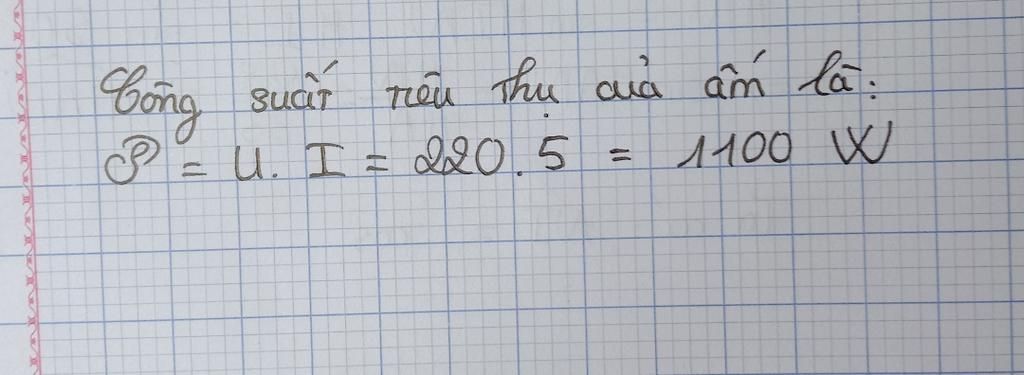 Công suất tiêu thụ của ấm là:
P = U. I = 220.5 = 1100 W